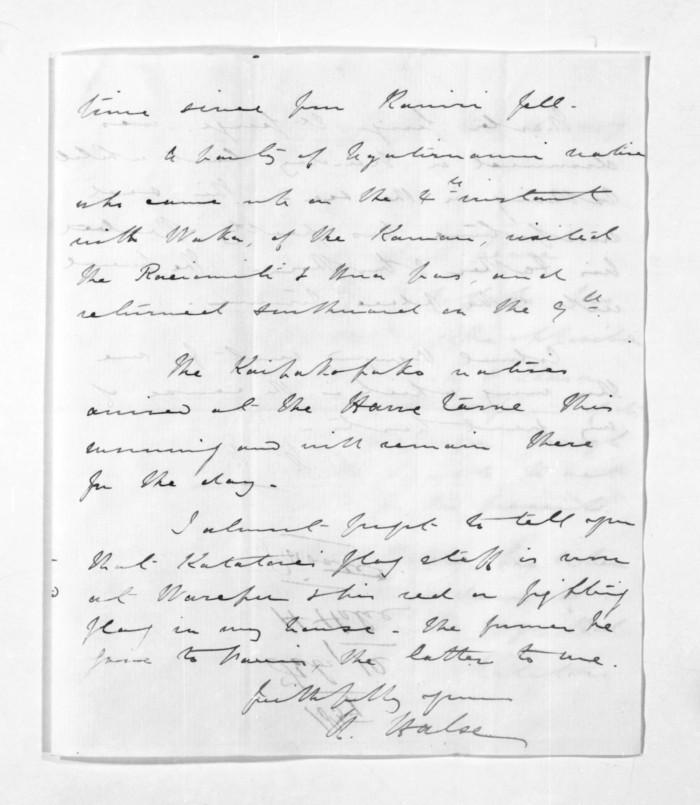 time since from Ramiri fell.
A party of Ngatiruanui natives
who came up on the 4th instant
with Waka, of the Kamau, visited
the Raciamiti & Mua pas, and
returned southward on the 9th.
The Kaipakopako natives
arrived at the Harre tame this
morning and will remain there
for the day.
I almost forgot to tell you
that Katatore's flag staff is now
at Wareper & his red or fighting
flag in my house. The former he
gave to the latter to me.
faithfully yours
H. Halse